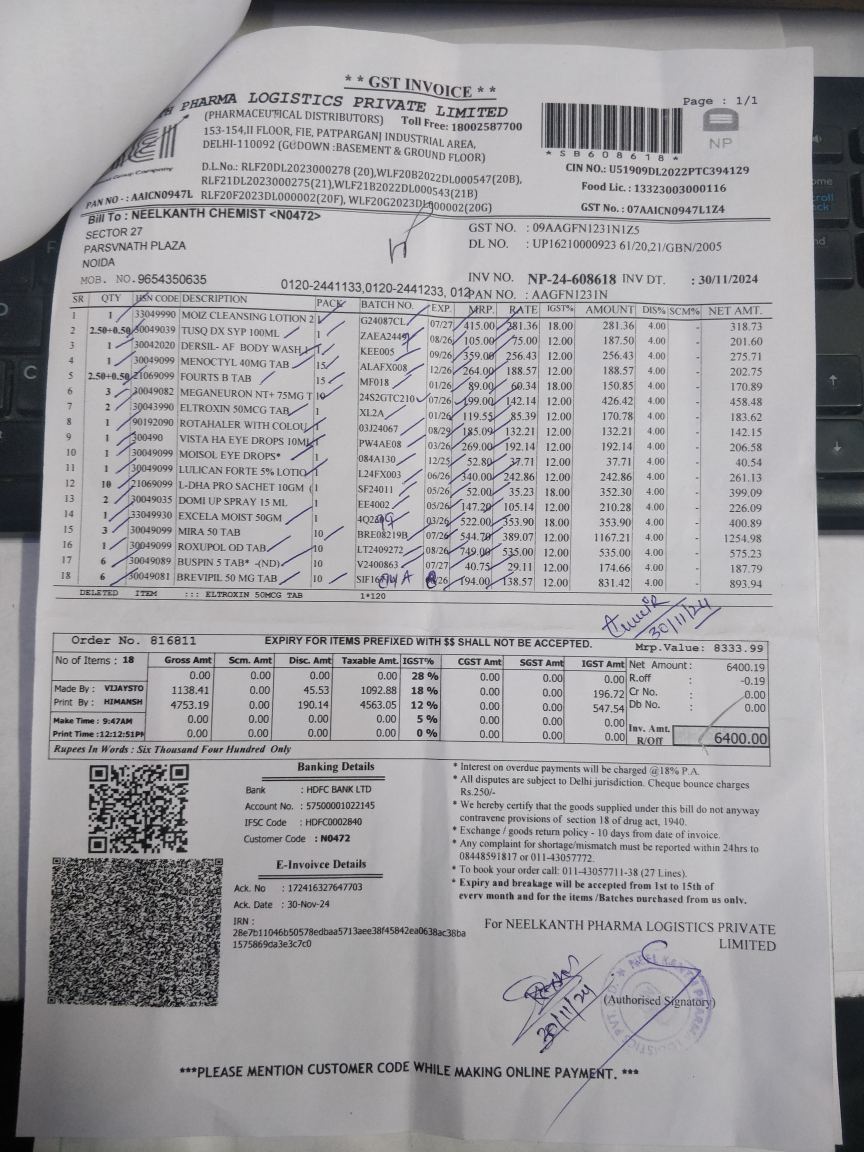 ** GST INVOICE **
PHARMA LOGISTICS PRIVATE LIMITED
(PHARMACEUTICAL DISTRIBUTORS) Toll Free: 18002587700
153-154,II FLOOR, FIE, PATPARGANJ INDUSTRIAL AREA,
DELHI-110092 (GUDOWN :BASEMENT & GROUND FLOOR)
D.L.No.: RLF20DL2023000278 (20),WLF20B2022DL000547(20B),
RLF21DL2023000275(21),WLF21B2022DL000543(21B)
RLF20F2023DL000002(20F), WLF20G2023DL000002(20G)
PAN NO - : AAICN0947L
Page : 1/1
NP
*SB608618*
CIN NO.: U51909DL2022PTC394129
Food Lic. : 13323003000116
GST No. : 07AAICN0947L1Z4
Bill To : NEELKANTH CHEMIST <N0472>
SECTOR 27
PARSVNATH PLAZA
NOIDA
MOB. NO.9654350635
0120-2441133,0120-2441233, 012
GST NO. : 09AAGFN1231N1Z5
DL NO. : UP16210000923 61/20,21/GBN/2005
INV NO. NP-24-608618 INV DT. : 30/11/2024
PAN NO. : AAGFN1231N
SR QTY HSN CODE DESCRIPTION PACK BATCH NO. EXP. MRP. RATE IGST% AMOUNT DIS% SCM% NET AMT.
1 1 33049990 MOIZ CLEANSING LOTION 2 1 G24087CL 07/27 415.00 281.36 18.00 281.36 4.00 - 318.73
2 2.50+0.50 30049039 TUSQ DX SYP 100ML 1 ZAEA2449 08/26 105.00 75.00 12.00 187.50 4.00 - 201.60
3 1 30042020 DERSIL- AF BODY WASH 1 KEE005 09/26 359.00 256.43 12.00 256.43 4.00 - 275.71
4 1 30049099 MENOCTYL 40MG TAB 15 ALAFX008 12/26 264.00 188.57 12.00 188.57 4.00 - 202.75
5 2.50+0.50 21069099 FOURTS B TAB 15 MF018 01/26 89.00 60.34 18.00 150.85 4.00 - 170.89
6 3 30049082 MEGANEURON NT+ 75MG T 10 24S2GTC210 07/26 199.00 142.14 12.00 426.42 4.00 - 458.48
7 2 30043990 ELTROXIN 50MCG TAB 1 XL2A 01/26 119.55 85.39 12.00 170.78 4.00 - 183.62
8 1 90192090 ROTAHALER WITH COLOU 1 03J24067 08/29 185.09 132.21 12.00 132.21 4.00 - 142.15
9 1 300490 VISTA HA EYE DROPS 10ML 1 PW4AE08 03/26 269.00 192.14 12.00 192.14 4.00 - 206.58
10 1 30049099 MOISOL EYE DROPS* 1 084A130 12/25 52.80 37.71 12.00 37.71 4.00 - 40.54
11 1 30049099 LULICAN FORTE 5% LOTIO 1 L24FX003 06/26 340.00 242.86 12.00 242.86 4.00 - 261.13
12 10 21069099 L-DHA PRO SACHET 10GM ( 1 SF24011 05/26 52.00 35.23 18.00 352.30 4.00 - 399.09
13 2 30049035 DOMI UP SPRAY 15 ML 1 EE4002 05/26 147.20 105.14 12.00 210.28 4.00 - 226.09
14 1 33049930 EXCELA MOIST 50GM 1 03/26 522.00 353.90 18.00 353.90 4.00 - 400.89
15 3 30049099 MIRA 50 TAB 10 BRE08219B 07/26 544.70 389.07 12.00 1167.21 4.00 - 1254.98
16 1 30049099 ROXUPOL OD TAB 10 LT2409272 08/26 749.00 535.00 12.00 535.00 4.00 - 575.23
17 6 30049089 BUSPIN 5 TAB* -(ND) 10 V2400863 07/27 40.75 29.11 12.00 174.66 4.00 - 187.79
18 6 30049081 BREVIPIL 50 MG TAB 10 194.00 138.57 12.00 831.42 4.00 - 893.94
DELETED ITEM ::: ELTROXIN 50MCG TAB 1*120
30/11/24
Order No. 816811 EXPIRY FOR ITEMS PREFIXED WITH $$ SHALL NOT BE ACCEPTED. Mrp.Value: 8333.99
No of Items : 18 Gross Amt Scm. Amt Disc. Amt Taxable Amt. IGST% CGST Amt SGST Amt IGST Amt
0.00 0.00 0.00 0.00 28 % 0.00 0.00 0.00
Made By : VIJAYSTO 1138.41 0.00 45.53 1092.88 18 % 0.00 0.00 196.72
Print By : HIMANSH 4753.19 0.00 190.14 4563.05 12 % 0.00 0.00 547.54
Make Time : 9:47AM 0.00 0.00 0.00 0.00 5 % 0.00 0.00 0.00
Print Time :12:12:51PM 0.00 0.00 0.00 0.00 0 % 0.00 0.00 0.00
Net Amount: 6400.19
R.off : -0.19
Cr No. : 0.00
Db No. : 0.00
Inv. Amt. R/Off 6400.00
Rupees In Words : Six Thousand Four Hundred Only
Banking Details
Bank : HDFC BANK LTD
Account No. : 57500001022145
IFSC Code : HDFC0002840
Customer Code : N0472
E-Invoivce Details
Ack. No : 172416327647703
Ack. Date : 30-Nov-24
IRN :
28e7b11046b50578edbaa5713aee38f45842ea0638ac38ba
1575869da3e3c7c0
* Interest on overdue payments will be charged @18% P.A.
* All disputes are subject to Delhi jurisdiction. Cheque bounce charges
Rs.250/-
* We hereby certify that the goods supplied under this bill do not anyway
contravene provisions of section 18 of drug act, 1940.
* Exchange / goods return policy - 10 days from date of invoice.
* Any complaint for shortage/mismatch must be reported within 24hrs to
08448591817 or 011-43057772.
* To book your order call: 011-43057711-38 (27 Lines).
* Expiry and breakage will be accepted from 1st to 15th of
every month and for the items /Batches purchased from us only.
For NEELKANTH PHARMA LOGISTICS PRIVATE
LIMITED
30/11/24
(Authorised Signatory)
NEELKANTH PHARMA LOGISTICS PVT. LTD.
***PLEASE MENTION CUSTOMER CODE WHILE MAKING ONLINE PAYMENT. ***